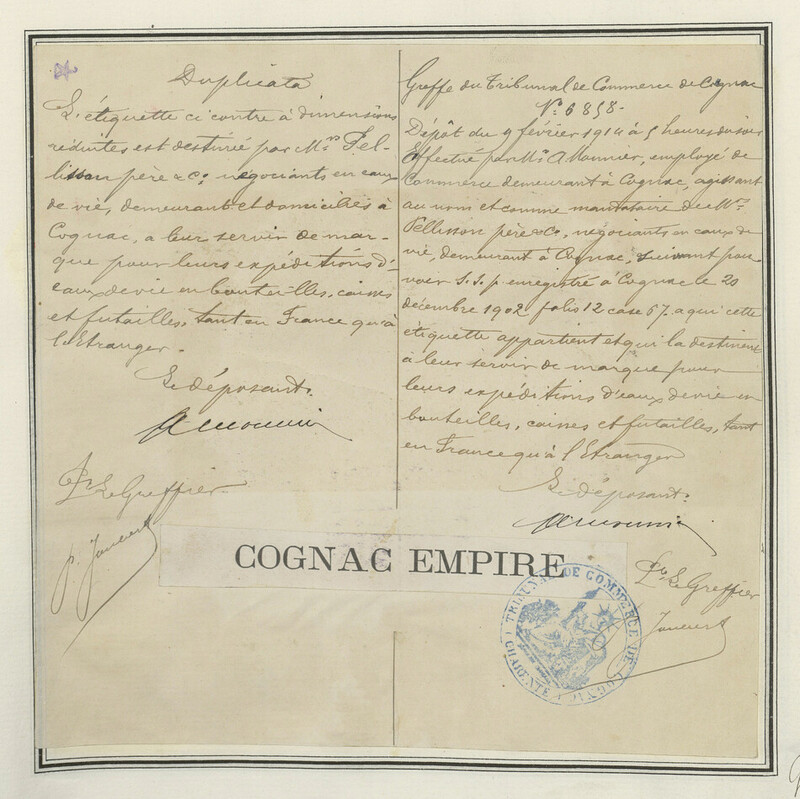 Duplicata
L'étiquette ci contre à dimensions
réduites est destinée par MM. Pel-
lisson père & Co, négociants en eaux
de vie, demeurant et domiciliés à
Cognac, a leur servir de mar-
que pour leurs expéditions d'
eaux de vie en bouteilles, caisses
et futailles, tant en France qu'à
l'Etranger.
Le déposant.
AMonnier
Pr Le Greffier
Greffe du Tribunal de Commerce de Cognac
No 6858.
Dépôt du 9 février 1914 à 5 heures du soir
Effectué par Mr. A Monnier, employé de
Commerce demeurant à Cognac, agissant
au nom et comme mandataire de MM.
Pellisson père & Co, négociants en eaux de
vie, demeurant à Cognac, suivant pou-
voir S.S.p enregistré à Cognac le 20
décembre 1902 folio 12 case 67. a qui cette
étiquette appartient et qui la destinent
à leur servir de marque pour
leurs expéditions d'eaux de vie en
bouteilles, caisses et futailles, tant
en France qu'à l'Etranger
Le déposant.
AMonnier
Pr Le Greffier
COGNAC EMPIRE
TRIBUNAL DE COMMERCE DE COGNAC
CHARENTE